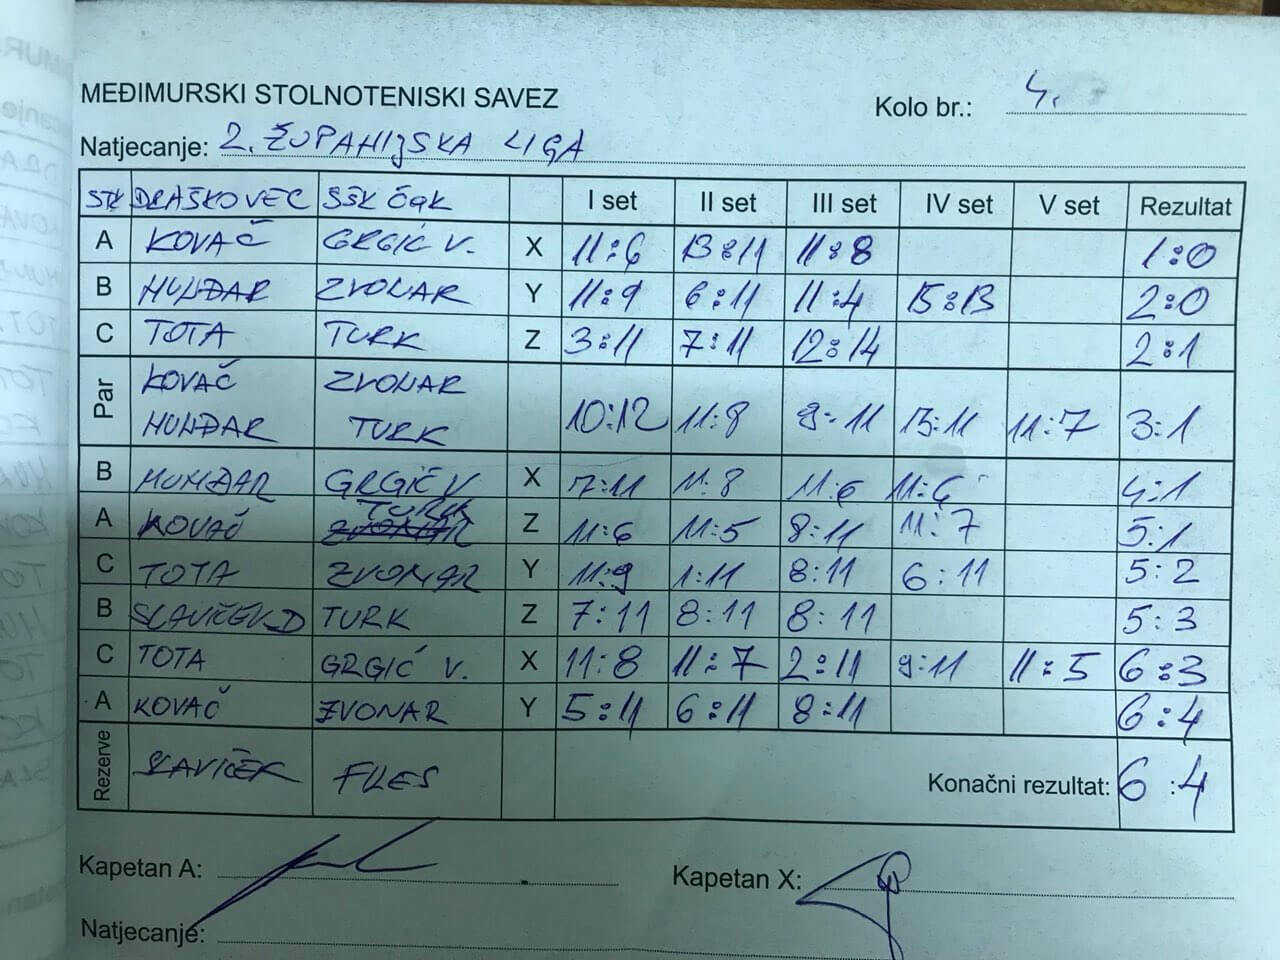 MEĐIMURSKI STOLNOTENISKI SAVEZ
Kolo br.: 4.
Natjecanje: 2. ŽUPANIJSKA LIGA
STK DRAŠKOVEC SŠK ČAK I set II set III set IV set V set Rezultat
A KOVAČ GRGIĆ V. X 11:6 13:11 11:8 1:0
B HUNĐAR ZVONAR Y 11:9 6:11 11:4 15:13 2:0
C TOTA TURK Z 3:11 7:11 12:14 2:1
Par KOVAČ ZVONAR
HUNĐAR TURK 10:12 11:8 9:11 13:11 11:7 3:1
B HUNĐAR GRGIĆ V X 7:11 11:8 11:6 11:6 4:1
A KOVAČ TURK Z 11:6 11:5 8:11 11:7 5:1
C TOTA ZVONAR Y 11:9 1:11 8:11 6:11 5:2
B SLAVIČEK D TURK Z 7:11 8:11 8:11 5:3
C TOTA GRGIĆ V. X 11:8 11:7 2:11 9:11 11:5 6:3
A KOVAČ ZVONAR Y 5:11 6:11 8:11 6:4
Rezerve SLAVIČEK FILES Konačni rezultat: 6:4
Kapetan A: Kapetan X:
Natjecanje: